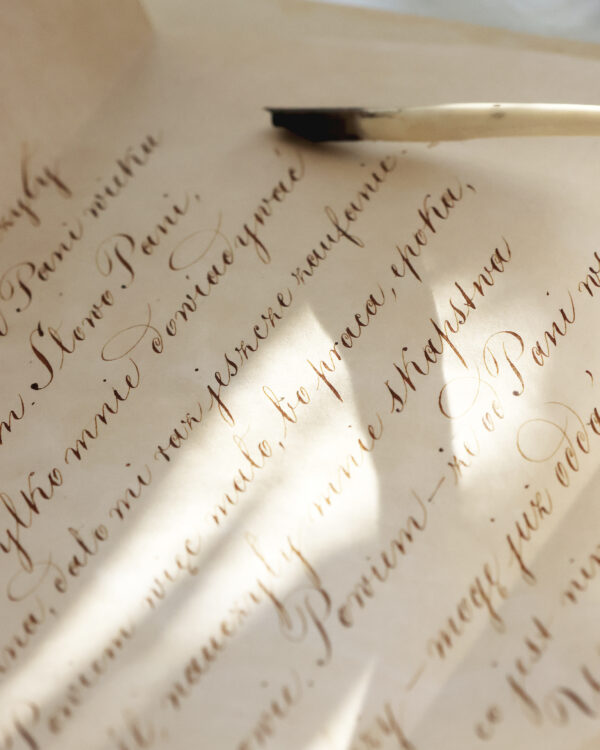 Pani wieku
m. Słowo Pani,
ylko mnie dowiadywać
nna, dało mi raz jeszcze zaufanie.
Powiem więc mało, bo praca, epoka,
nauczyły mnie skąpstwa
owie. Powiem – że od Pani
– mogę już
co jest